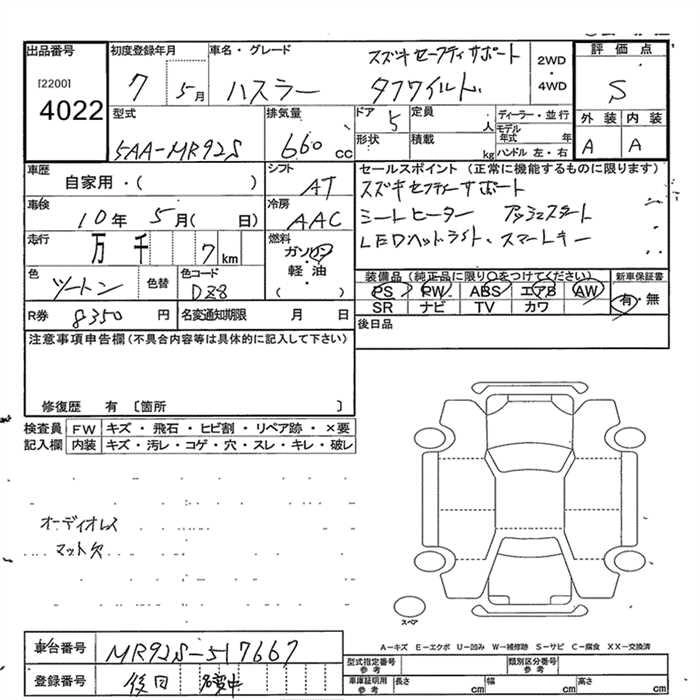 出品番号 初度登録年月 車名・グレード 2WD・4WD 評価点
[2200] 4022
7 5月 ハスラー スズキセーフティサポート タフワイルド S
型式 排気量 ドア 定員 ディーラー・並行 外装 内装
5AA-MR92S 660cc 5 人 モデル年式 年 A A
形状 積載 kg ハンドル 左・右
車歴 自家用・( ) シフト AT
セールスポイント (正常に機能するものに限ります)
スズキセーフティーサポート
シートヒーター プッシュスタート
LEDヘッドライト、スマートキー
車検 10年 5月( 日) 冷房 AAC
走行 万 千 7km 燃料 ガソリン・軽油 ( )
色 ツートン 色替 色コード DZ8
装備品 (純正品に限り○をつけてください) 新車保証書
PS PW ABS エアB AW 有・無
SR ナビ TV カワ
R券 8350円 名変通知期限 月 日
後日品
注意事項申告欄 (不具合内容等は具体的に記入して下さい)
修復歴 有 〔箇所 〕
検査員記入欄 FW キズ・飛石・ヒビ割・リペア跡・×要
内装 キズ・汚レ・コゲ・穴・スレ・キレ・破レ
オーディオレス
マット欠
スペア
A-キズ E-エクボ U-凹み W-補修跡 S-サビ C-腐食 XX-交換済
車台番号 MR92S-517667
登録番号 後日
型式指定番号参考 類別区分番号参考
車庫証明用参考 長さ cm 幅 cm 高さ cm